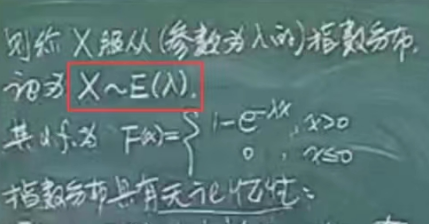 则称 X 服从(参数为λ的)指数分布,
记为 X~E(λ).
其d.f.为 F(x)={ 1-e^{-λx}, x>0
0 , x≤0
指数分布具有无记忆性: